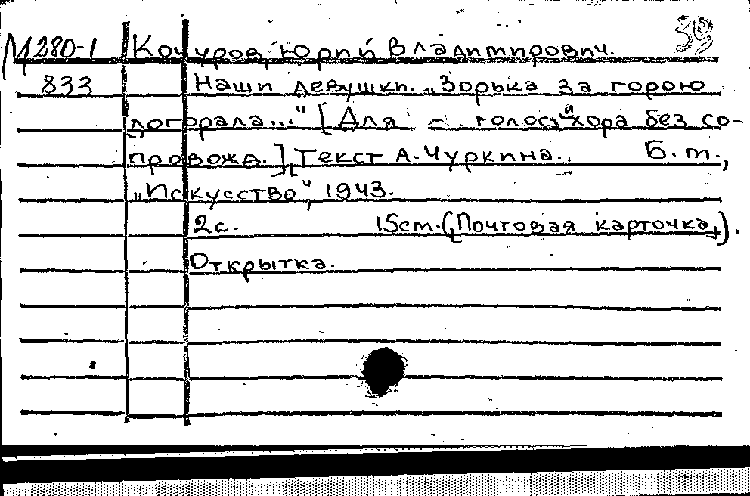 М 280-1 Кочуров, Юрий Владимирович. 39
833 Наши девушки. „Зорька за горою
догорала..." [Для – голосн. хора без со-
провожд.] Текст А. Чуркина. Б. м.,
„Искусство", 1943.
2с. 15см. (Почтовая карточка).
Открытка.